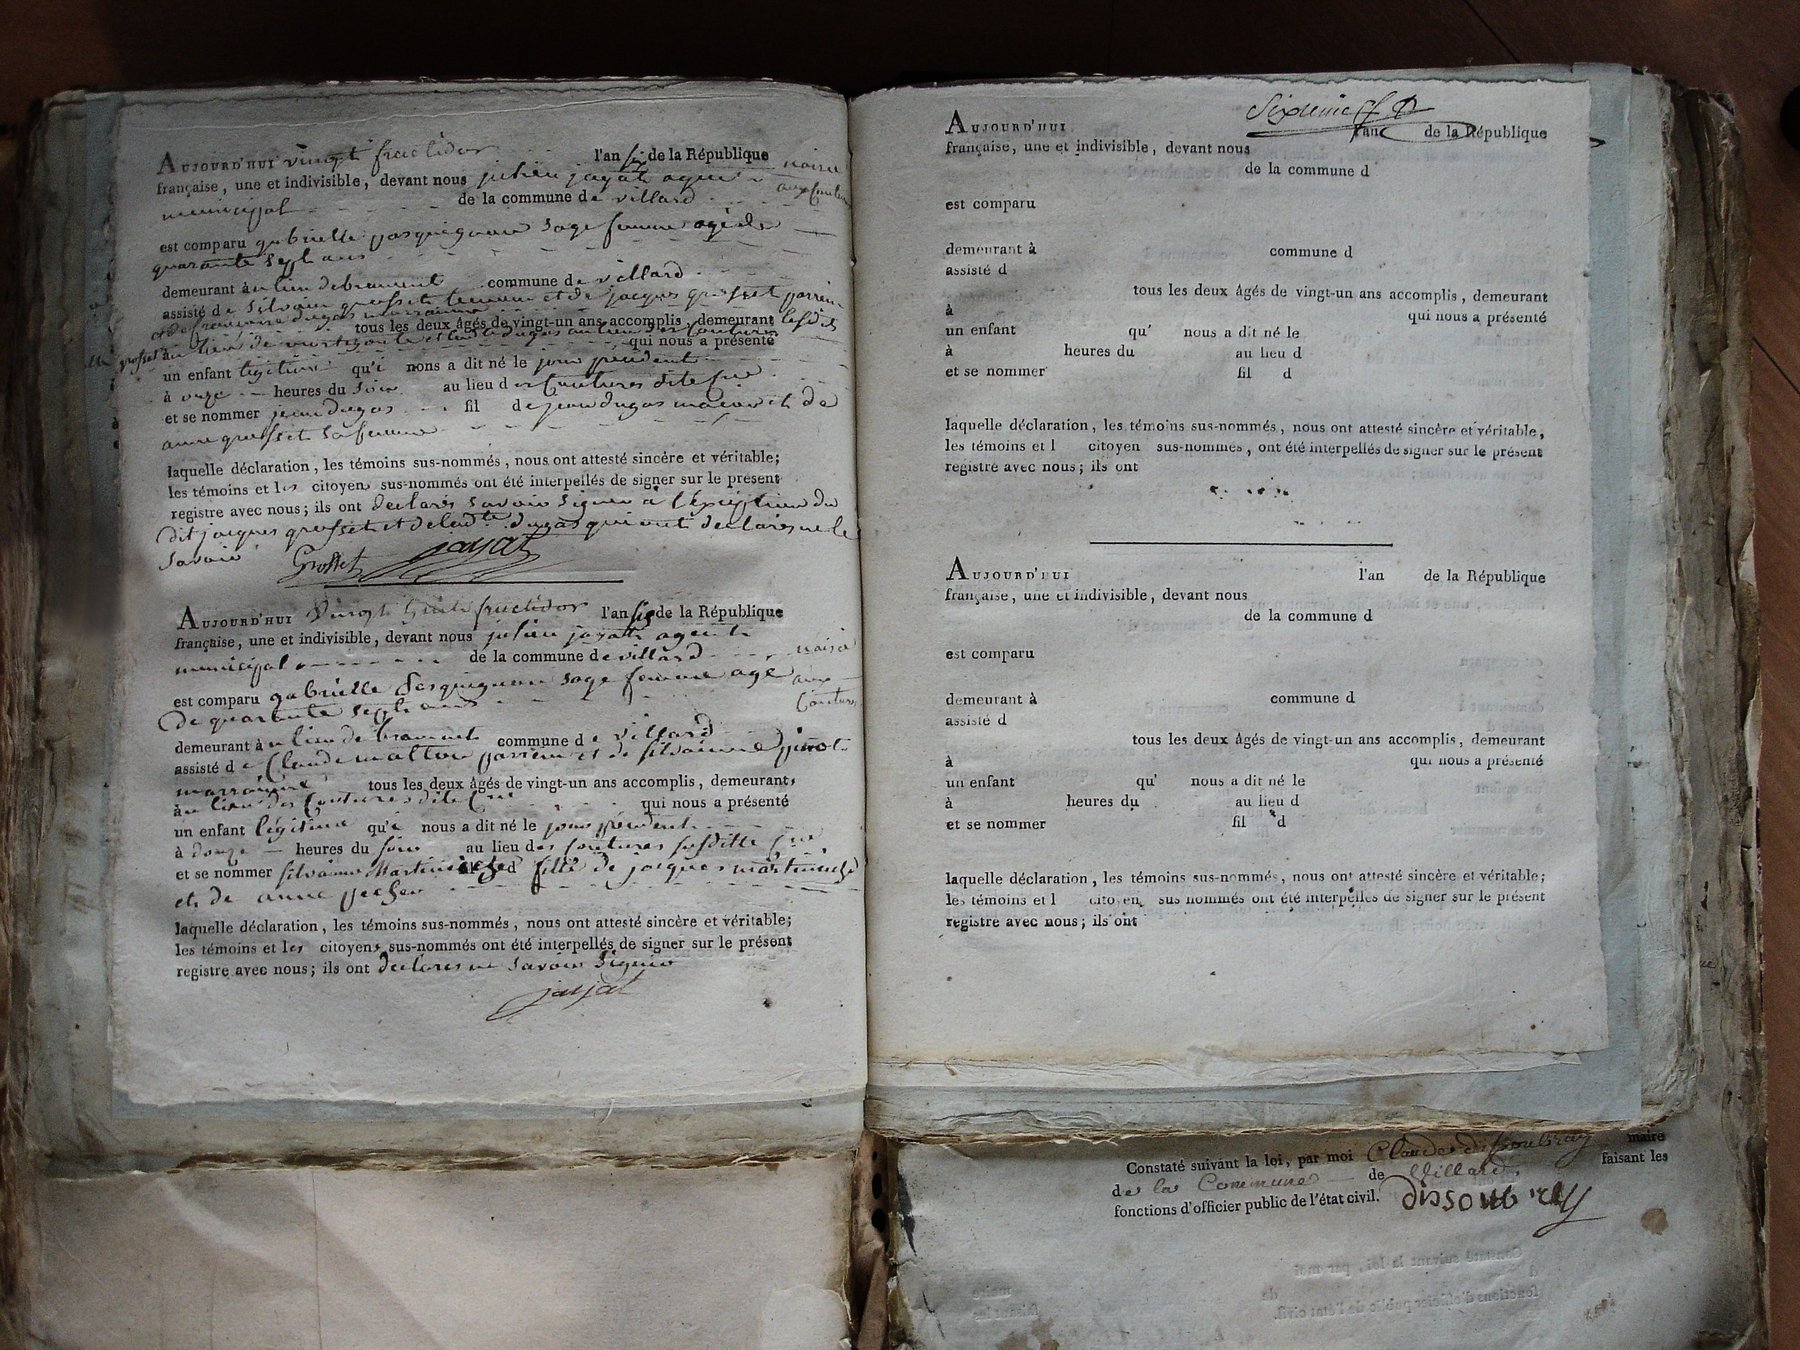 AUJOURD'HUI vingt fructidor l'an six de la République
française, une et indivisible, devant nous julien jayat agent
municipal de la commune de villard
est comparu gabrielle pasquignon sage femme agée de
quarante sept ans
demeurant à commune de villard
assisté de Silvain grosset et de jacques grosset parrein
et de dugas marrainne
tous les deux âgés de vingt-un ans accomplis, demeurant lesdits
au lieu de
qui nous a présenté
un enfant légitime qu'i nous a dit né le jour précédent
à onze heures du soir au lieu des Coutures
et se nommer jean dugas fil de jean dugas maçon et de
anne grosset sa femme
laquelle déclaration, les témoins sus-nommés, nous ont attesté sincère et véritable;
les témoins et les citoyens sus-nommés ont été interpellés de signer sur le présent
registre avec nous; ils ont declarés savoir signer à l'exception du
dit jacques grosset et de ladte dugas qui ont declarés ne le
savoir Grosset jayat
AUJOURD'HUI Vingt huit fructidor l'an six de la République
française, une et indivisible, devant nous julien jayat agent
municipal de la commune de villard
est comparu gabrielle Pasquignon sage femme age
de quarante sept ans
demeurant à commune de villard
assisté de Claude malton parrein et de silvainne pinot
marrainne tous les deux âgés de vingt-un ans accomplis, demeurant
au lieu des Coutures qui nous a présenté
un enfant légitime qu'i nous a dit né le jour précédent
à douze heures du soir au lieu des Coutures susditte
et se nommer silvainne Martinière fille de jacques
et de anne
laquelle déclaration, les témoins sus-nommés, nous ont attesté sincère et véritable;
les témoins et les citoyens sus-nommés ont été interpellés de signer sur le présent
registre avec nous; ils ont declarés ne savoir signer
jayat
AUJOURD'HUI l'an de la République
française, une et indivisible, devant nous
de la commune d
est comparu
demeurant à commune d
assisté d
tous les deux âgés de vingt-un ans accomplis, demeurant
à qui nous a présenté
un enfant qu' nous a dit né le
à heures du au lieu d
et se nommer fil d
laquelle déclaration, les témoins sus-nommés, nous ont attesté sincère et véritable,
les témoins et l citoyen sus-nommés, ont été interpellés de signer sur le présent
registre avec nous; ils ont
AUJOURD'HUI l'an de la République
française, une et indivisible, devant nous
de la commune d
est comparu
demeurant à commune d
assisté d
tous les deux âgés de vingt-un ans accomplis, demeurant
à qui nous a présenté
un enfant qu' nous a dit né le
à heures du au lieu d
et se nommer fil d
laquelle déclaration, les témoins sus-nommés, nous ont attesté sincère et véritable;
les témoins et l citoyen sus nommés ont été interpellés de signer sur le présent
registre avec nous; ils ont
Constaté suivant la loi, par moi Claude dissoubray maire
de la Commune de Villard faisant les
fonctions d'officier public de l'état civil. dissoubray